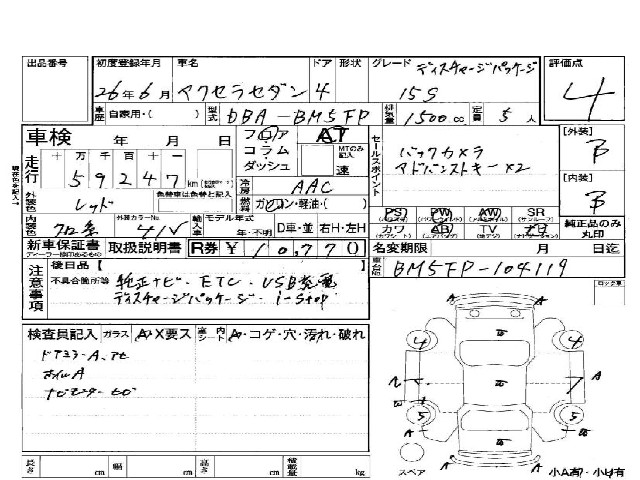 出品番号 初度登録年月 車名 ドア 形状 グレード ディスチャージパッケージ 評価点
26年6月 アクセラセダン 4 15S 4
車歴 自家用・( ) 型式 DBA-BM5FP 排気量 1500cc 定員 5人
車検 年 月 日 フロア AT セールスポイント [外装]
走行 十 万 千 百 十 一 コラム MTのみ記入 バックカメラ B
59247 km ダッシュ 速 アドバンストキー×2
外装色 レッド 色替車は元色を記入 冷房 AAC [内装]
燃料 ガソリン・軽油・( ) B
内装色 クロ系 外装カラーNo. 41V 輸入車 モデル年式 年・不明 D車・並 右H・左H
PS PW AW SR 純正品のみ丸印
カワ AB TV ナビ
新車保証書 取扱説明書 R券 ¥10,770 名変期限 月 日迄
ディーラー捺印あるもの
注意事項 後日品 [ 車台No. BM5FP-104119
不具合箇所等 純正ナビ・ETC・USB充電
ディスチャージパッケージ i-stop
ロック車
検査員記入 ガラス A・X要ス 室内 シート A・コゲ・穴・汚れ・破れ
ドアミラーA、
ホイルA
A A
4 4
A
5 5
A A
スペア 小A有・小U有
長さ cm 幅 cm 高さ cm 積載量 kg